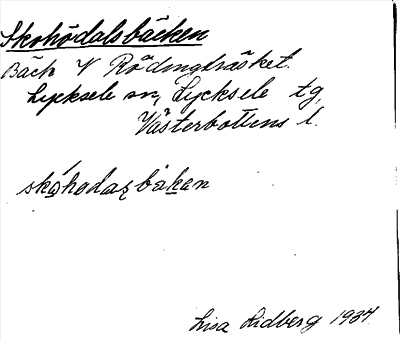 Skohödalsbäcken
Bäck V Rödingträsket.
Lycksele sn, Lycksele tg,
Västerbottens l.
Lisa Lidberg 1937